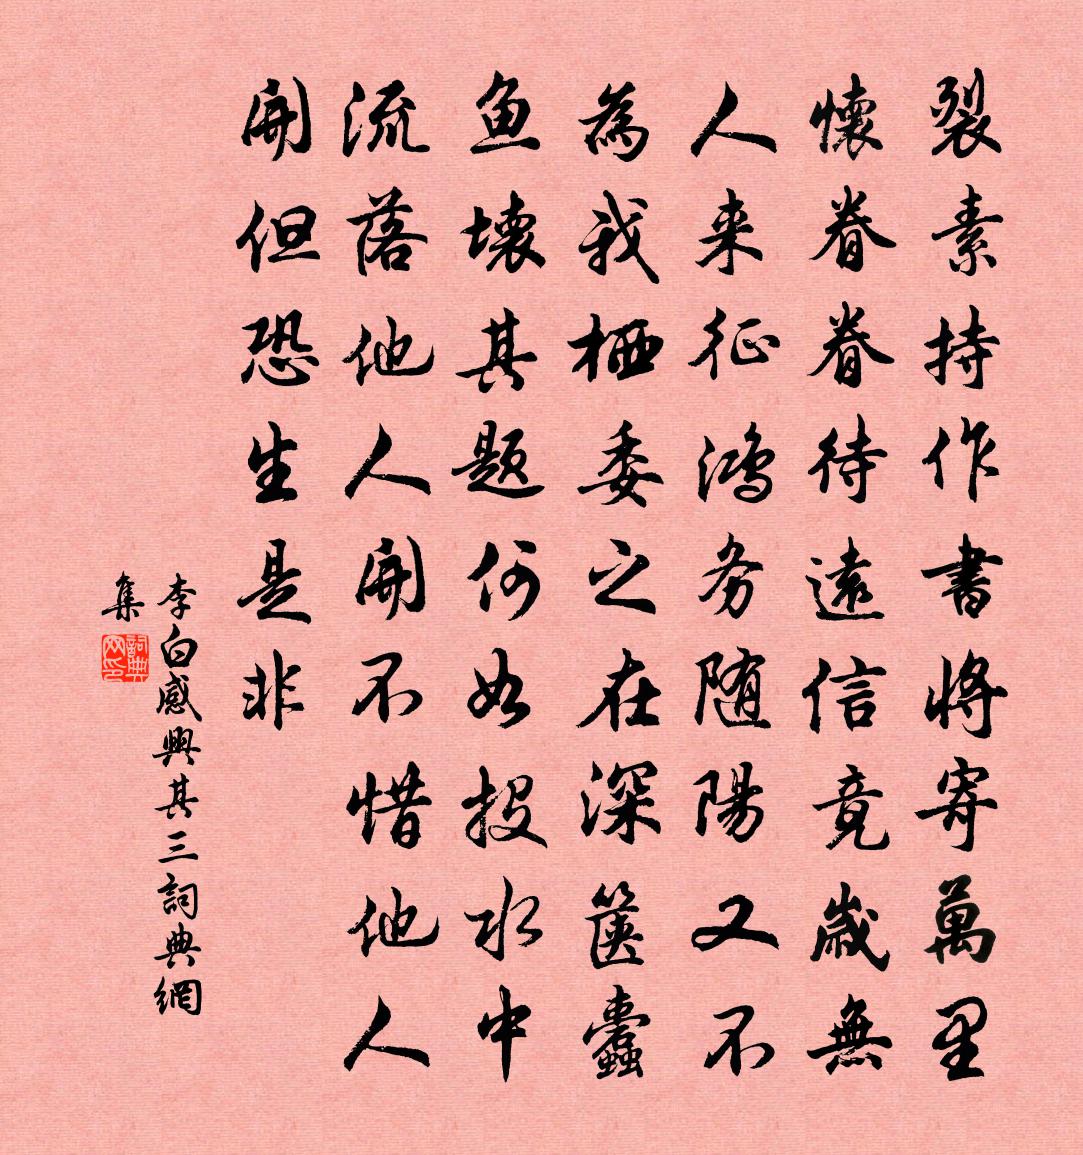 裂素持作書將寄萬里
懷眷眷待遠信竟歲無
人来征鴻务随陽又不
為我栖委之在深篋蠹
魚壊其題何如投水中
流落他人開不惜他人
開但恐生是非
李白感興其三詞典網
集
詞典网印